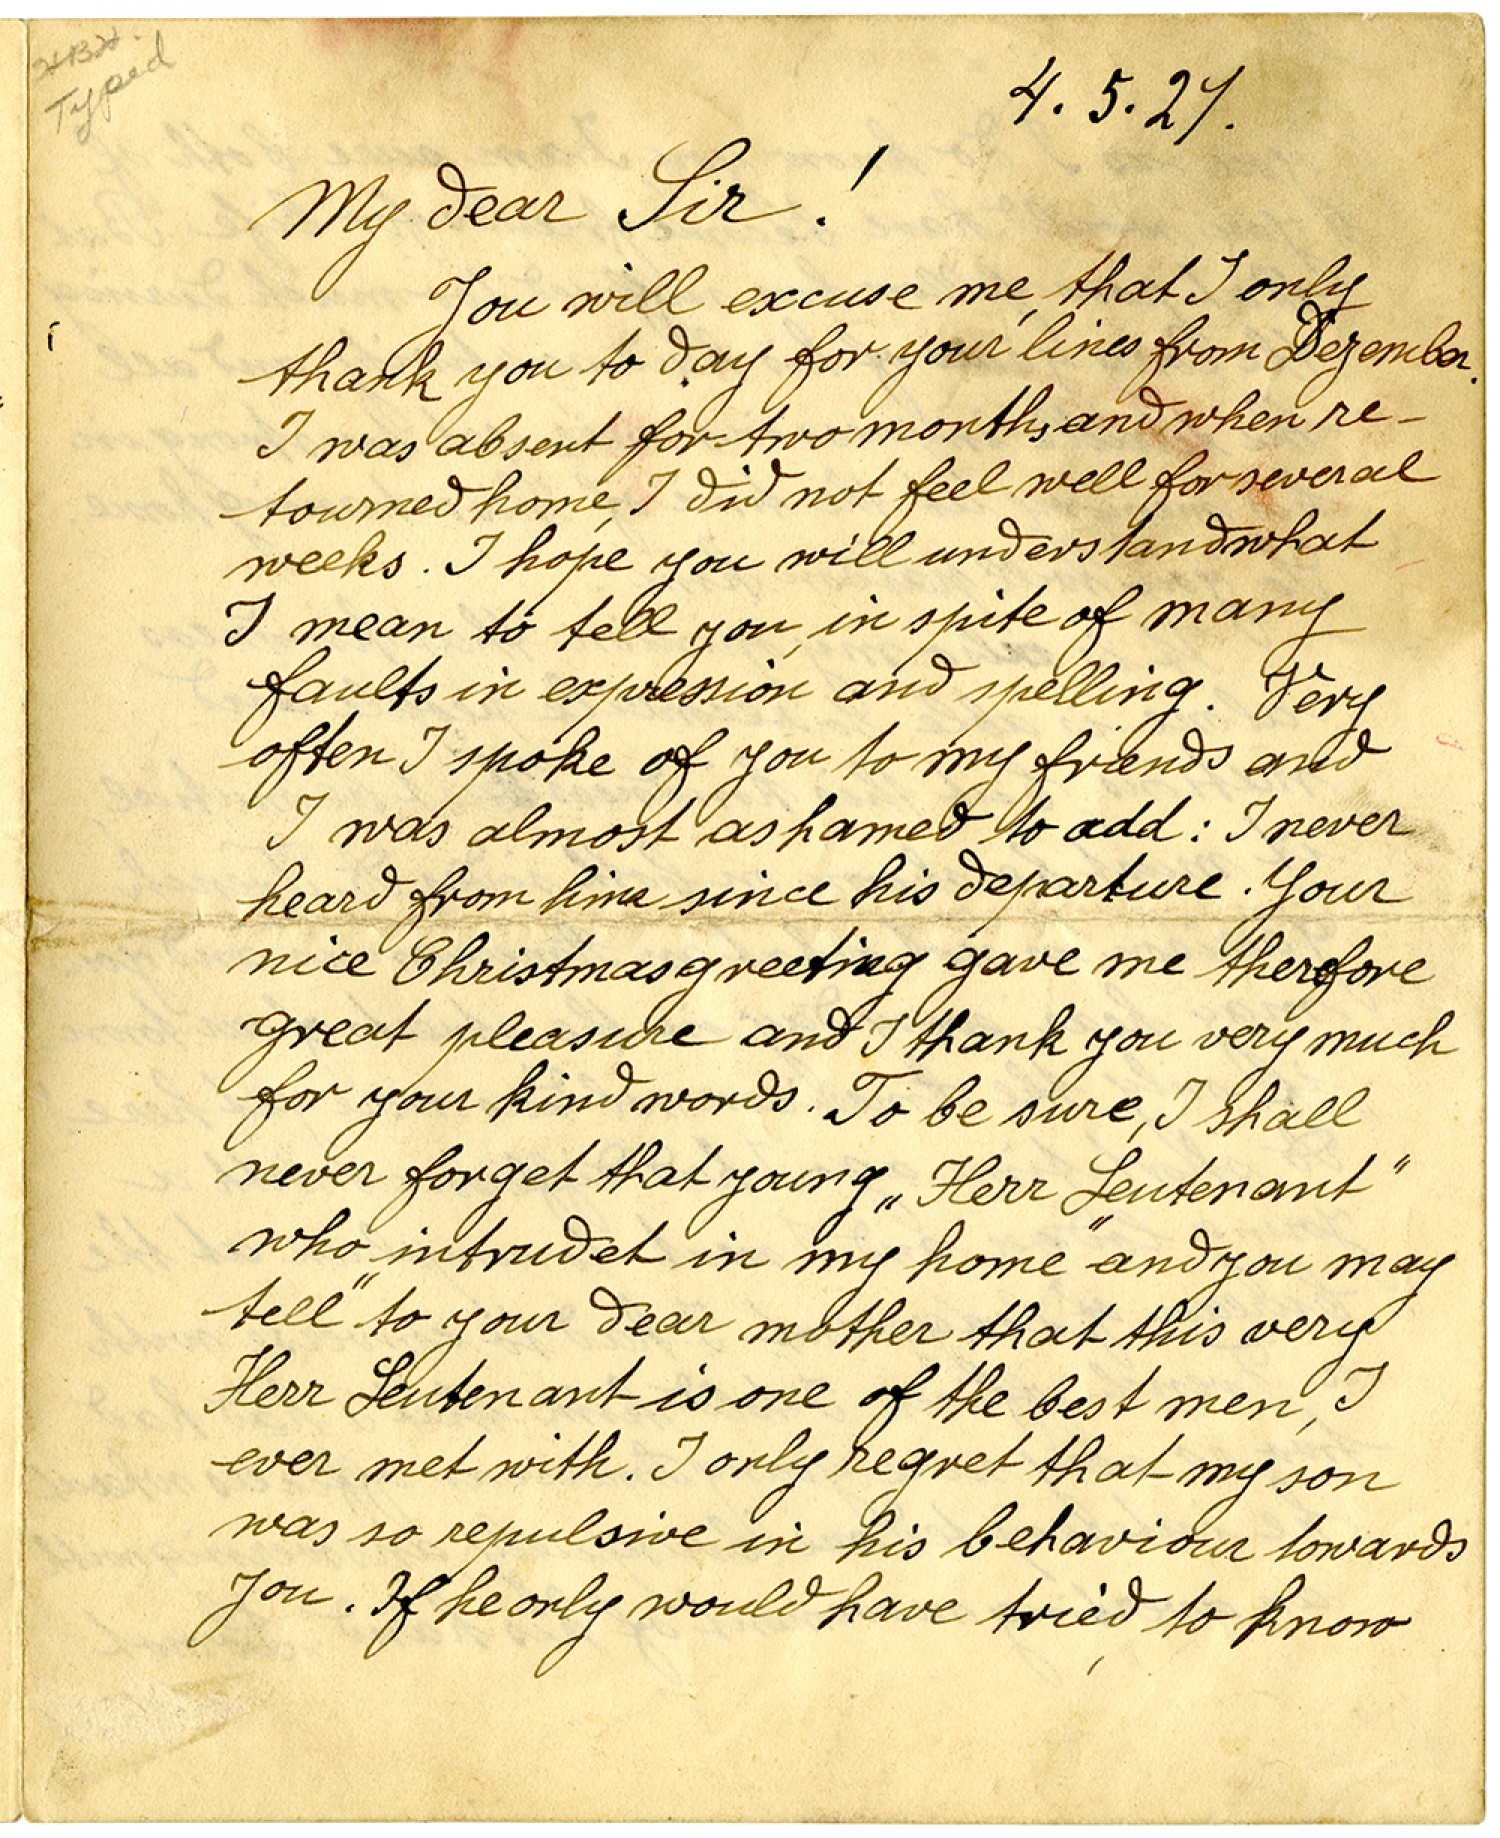 Typed
4. 5. 27.
My dear Sir!
You will excuse me, that I only
thank you to day for your lines from Dezember.
I was absent for two months, and when re-
tourned home, I did not feel well for several
weeks. I hope you will understand what
I mean to tell you, in spite of many
faults in expression and spelling. Very
often I spoke of you to my friends and
I was almost ashamed to add: I never
heard from him since his departure. Your
nice Christmasgreeting gave me therefore
great pleasure and I thank you very much
for your kind words. To be sure, I shall
never forget that young „Herr Leutenant"
who „intrudet in my home" and you may
tell" to your dear mother that this very
Herr Leutenant is one of the best men, I
ever met with. I only regret that my son
was so repulsive in his behaviour towards
you. If he only would have tried to know